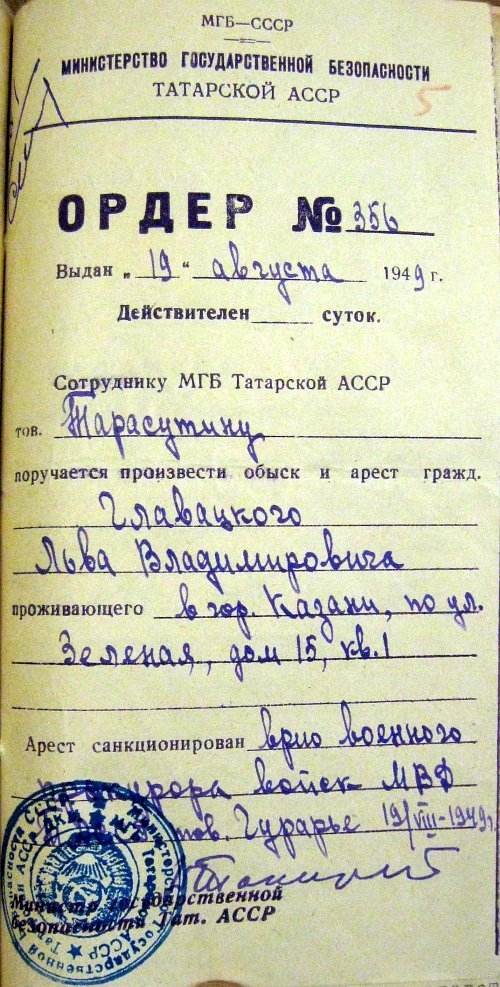 МГБ—СССР
МИНИСТЕРСТВО ГОСУДАРСТВЕННОЙ БЕЗОПАСНОСТИ
ТАТАРСКОЙ АССР
5
ОРДЕР № 356
Выдан „19“ августа 1949 г.
Действителен суток.
Сотруднику МГБ Татарской АССР
тов. Тарасутину
поручается произвести обыск и арест гражд.
Главацкого
Льва Владимировича
проживающего в гор. Казани, по ул.
Зеленая, дом 15, кв. 1
Арест санкционирован врио военного
прокурора войск МВД
тов. Гурарье 19/VIII-1949 г.
Министр государственной
безопасности Тат. АССР